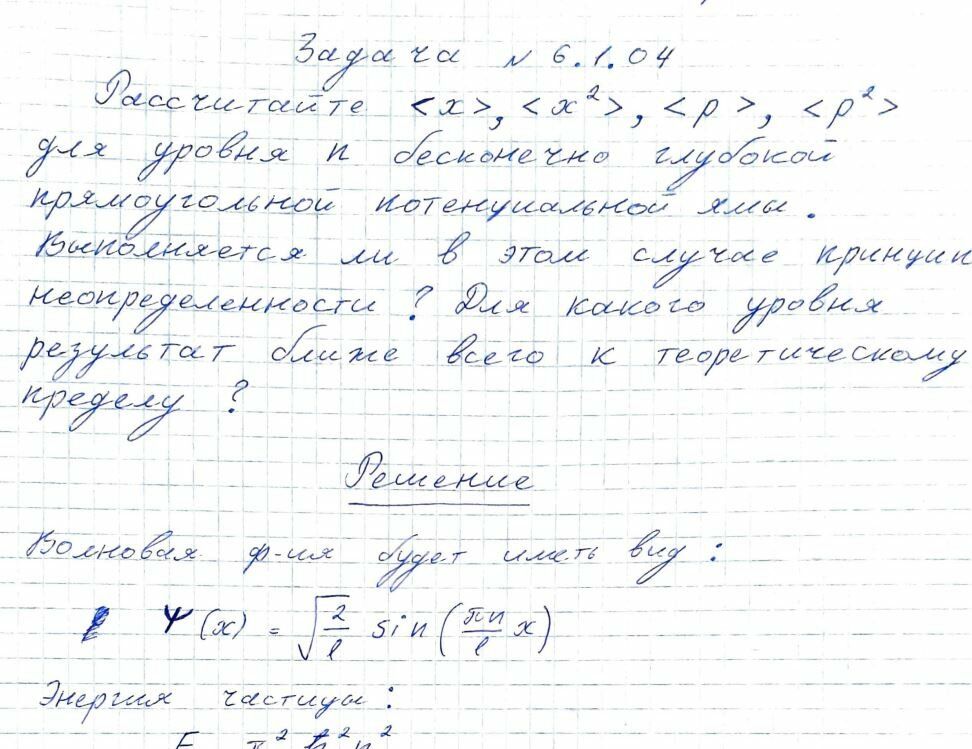 Задача № 6.1.04
Рассчитайте <x>, <x²>, <p>, <p²>
для уровня n бесконечно глубокой
прямоугольной потенциальной ямы.
Выполняется ли в этом случае принцип
неопределенности? Для какого уровня
результат ближе всего к теоретическому
пределу?
Решение
Волновая ф-ия будет иметь вид:
Ψ(x) = √(2/l) sin(πn/l x)
Энергия частицы:
E π² ħ² n²